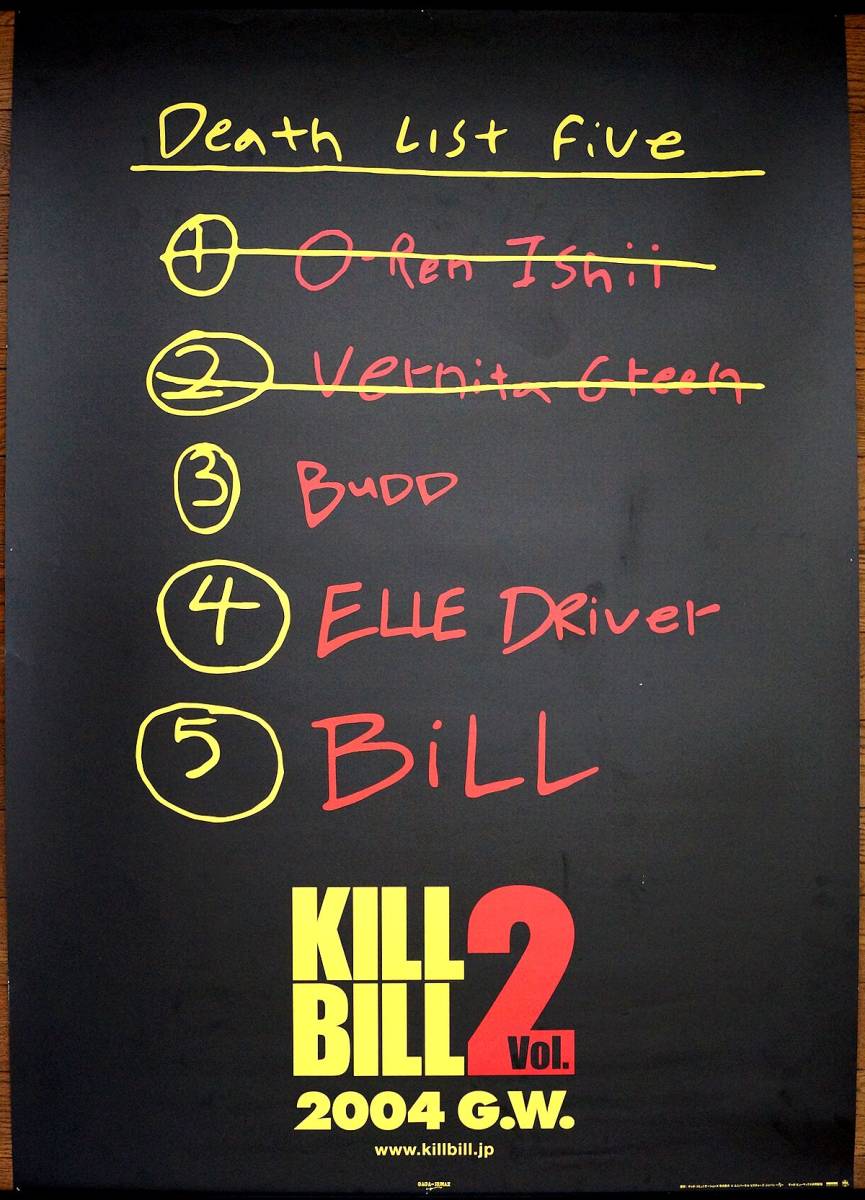 Death List Five
1 O-Ren Ishii
2 Vernita Green
3 Budd
4 ELLE DRiver
5 BiLL
KILL
BILL 2
Vol.
2004 G.W.
www.killbill.jp